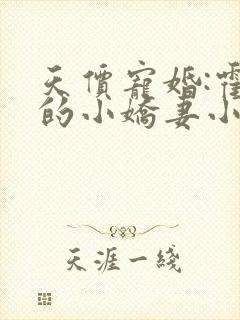 天價寵婚:霍
的小嬌妻小
天涯一綫